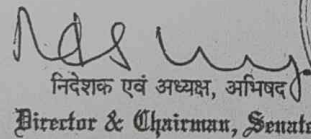 निदेशक एवं अध्यक्ष, अभिषद
Director & Chairman, Senate